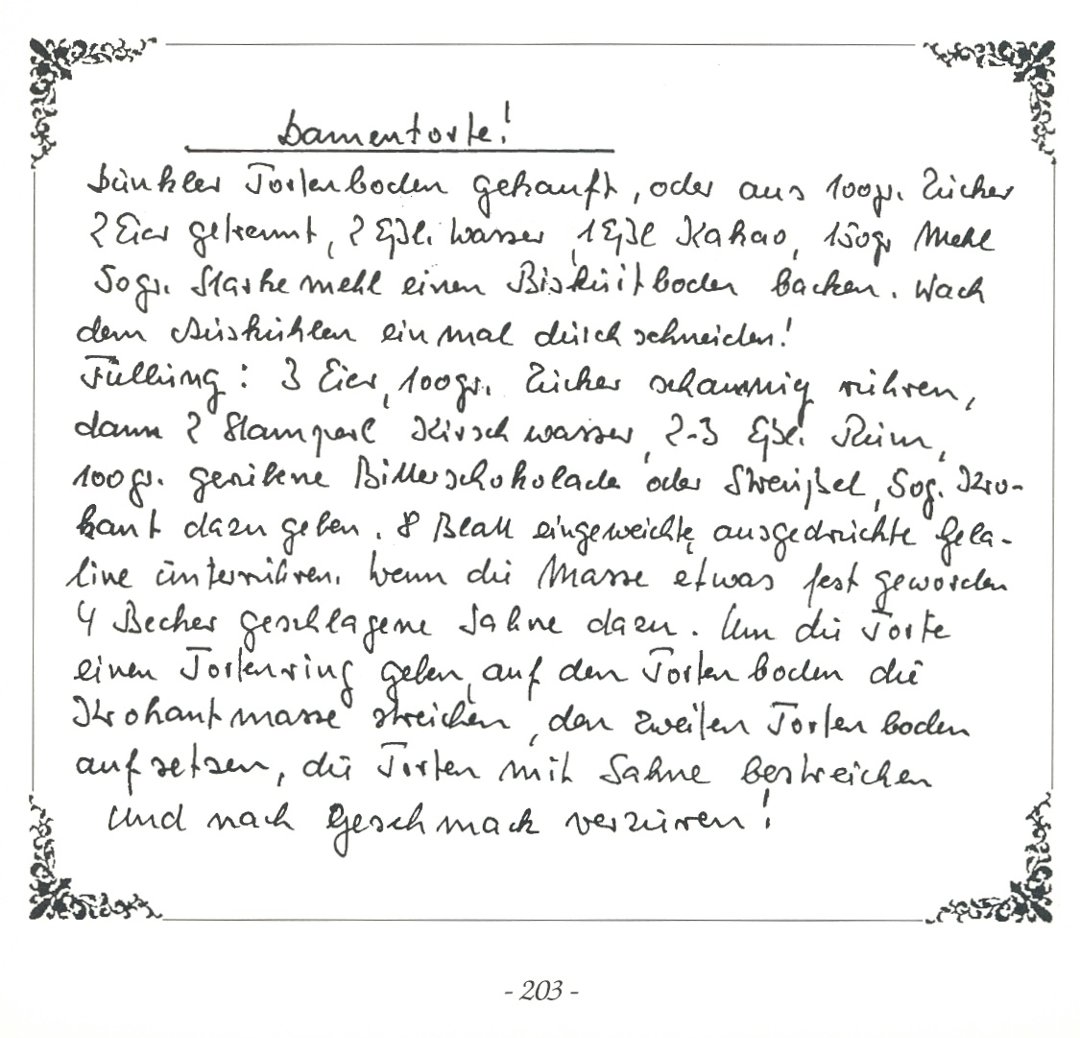 Damentorte!
Dunkler Tortenboden gekauft, oder aus 100gr. Zucker
2 Eier getrennt, 2 Eßl. Wasser, 1 Eßl Kakao, 150gr Mehl
50gr. Starkemehl einen Biskuitboden backen. Nach
dem Auskühlen einmal durchschneiden!
Füllung: 3 Eier, 100gr. Zucker schaumig rühren,
dann 2 Stamperl Kirschwasser, 2-3 Eßl. Rum,
100gr. geriebene Bitterschokolade oder Streußel, 50g. Kro-
kant dazu geben. 8 Blatt eingeweichte, ausgedrückte Gela-
tine unterrühren. Wenn die Masse etwas fest geworden
4 Becher geschlagene Sahne dazu. Um die Torte
einen Tortenring geben, auf den Tortenboden die
Krokantmasse streichen, den zweiten Tortenboden
aufsetzen, die Torten mit Sahne bestreichen
und nach Geschmack verzieren!
- 203 -